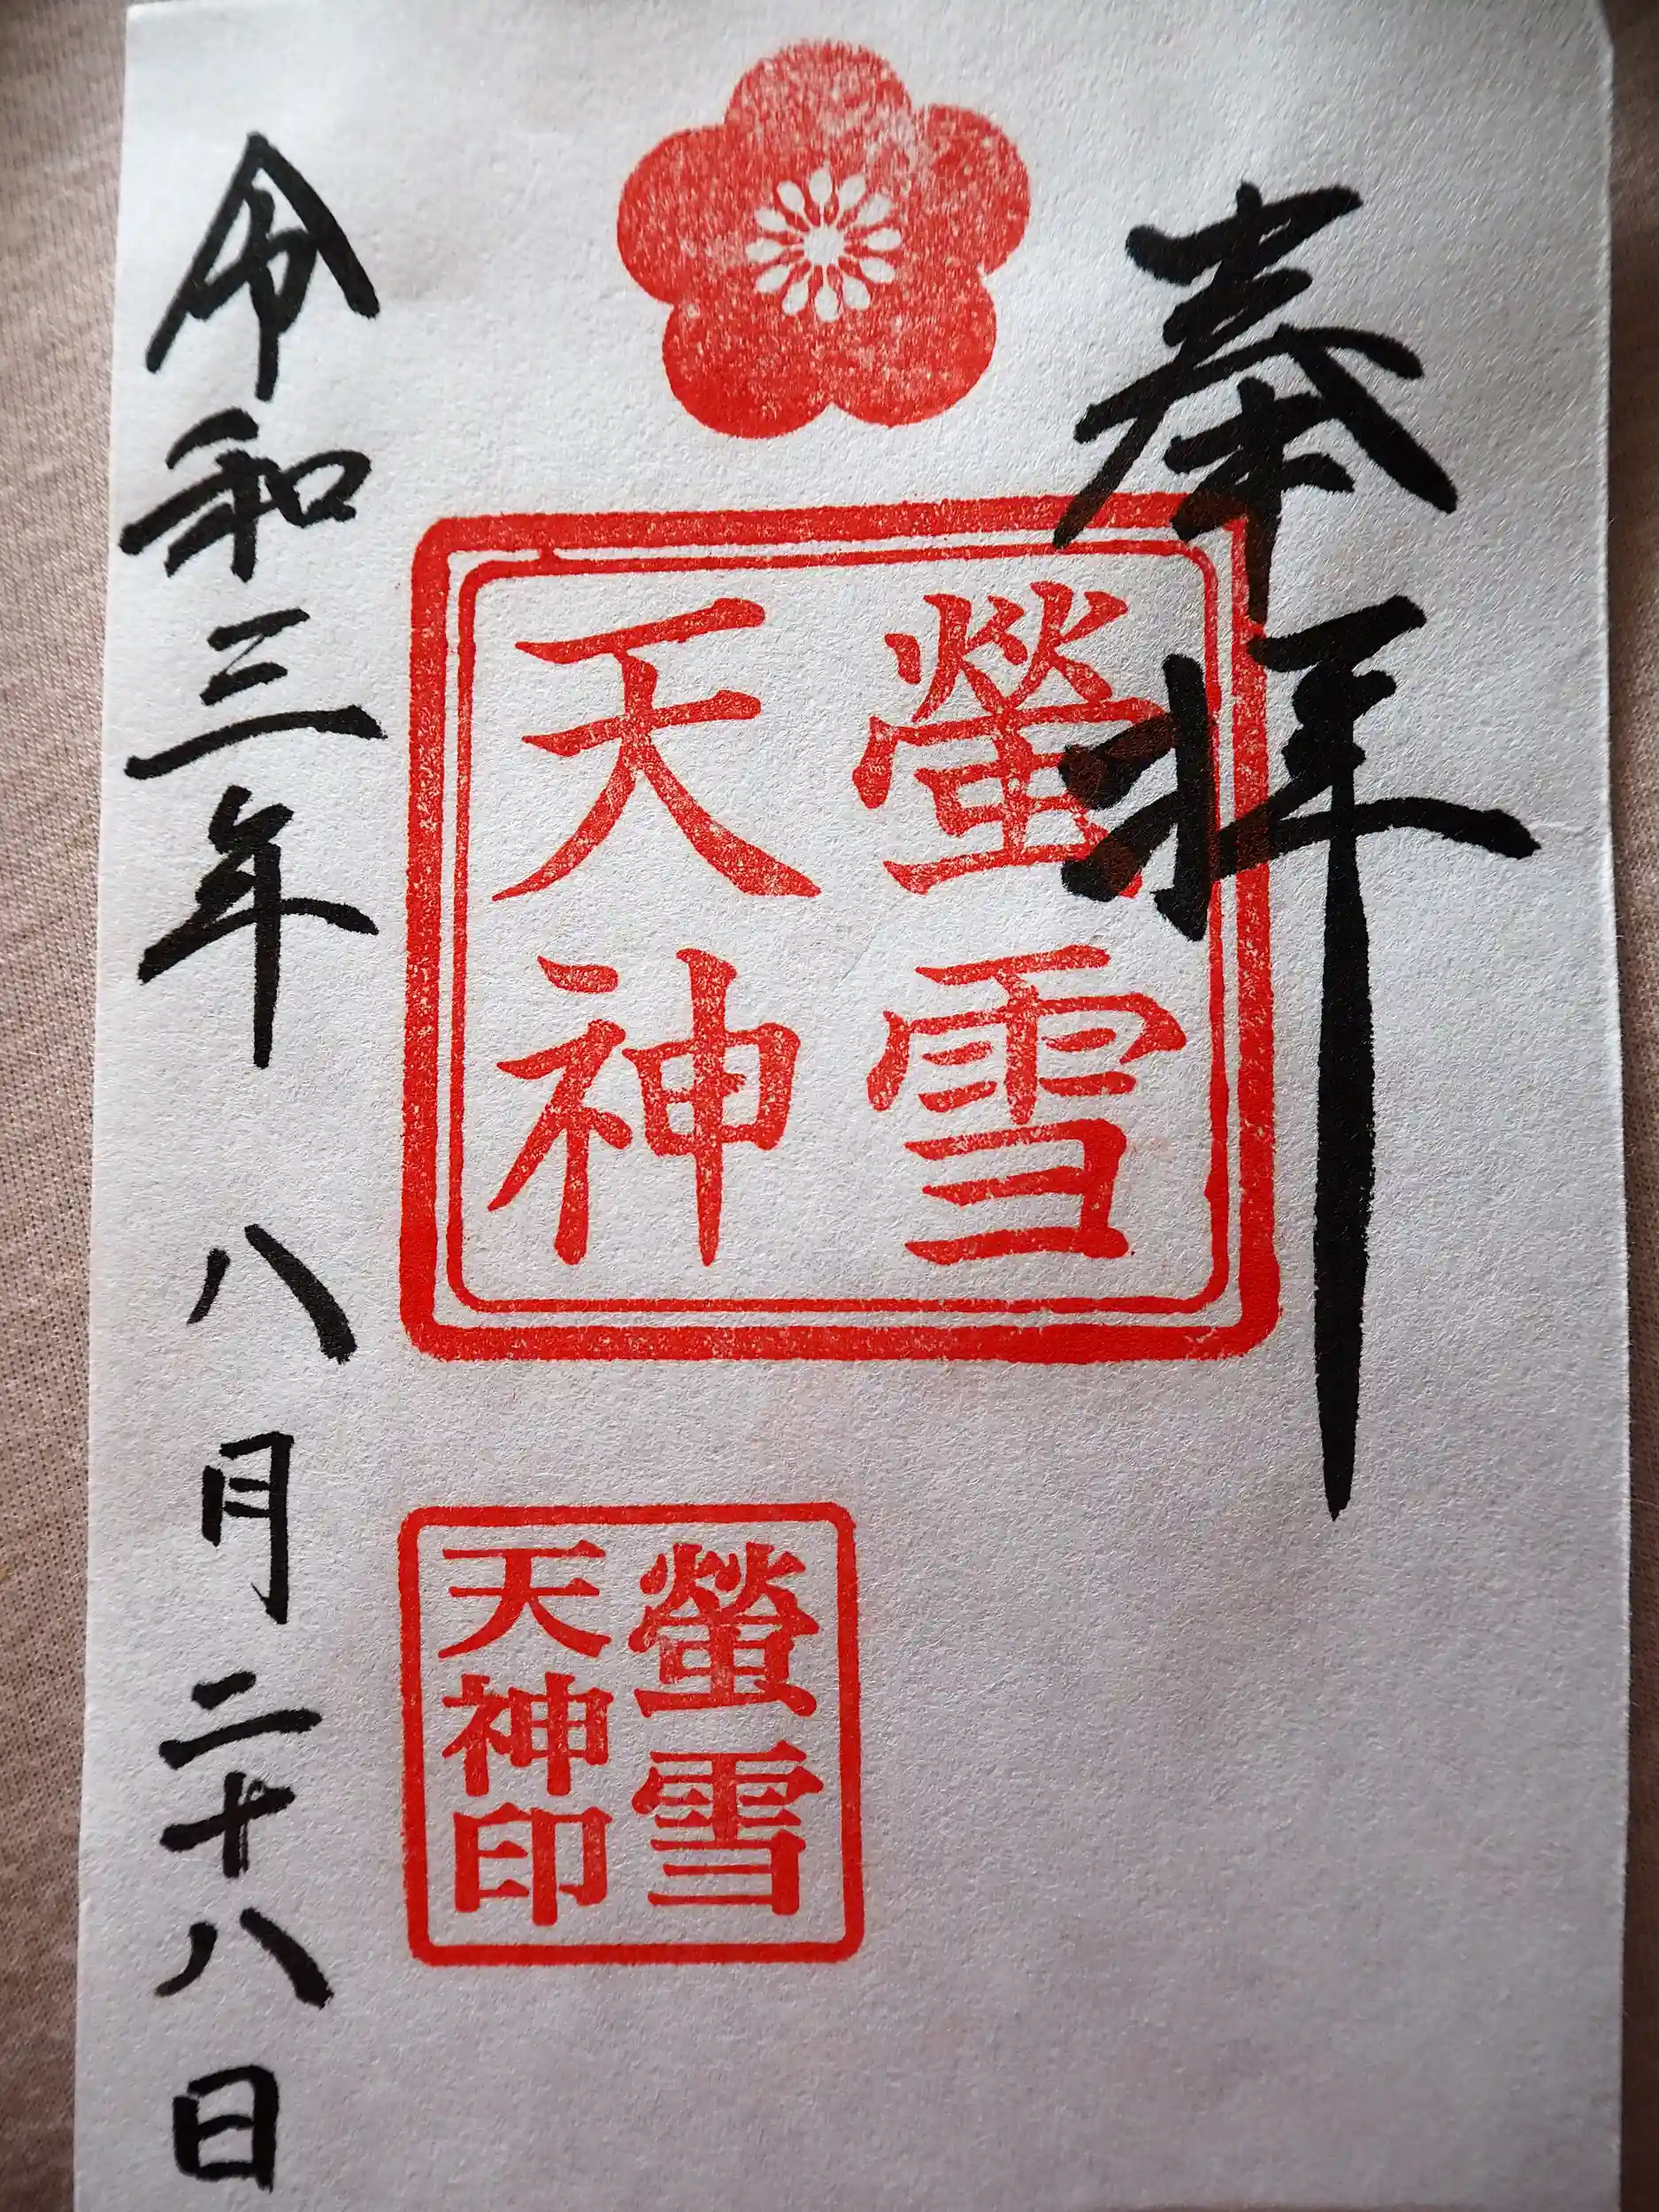 奉拝
螢雪
天神
螢雪
天神印
令和三年 八月 二十八日